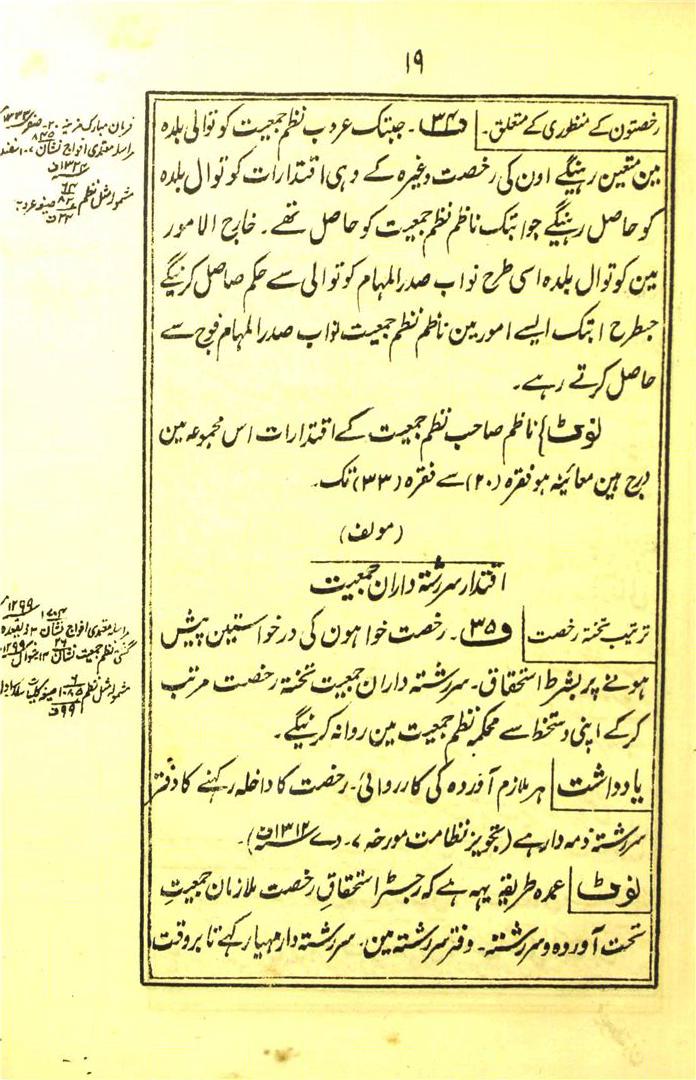 ۱۹
رخصتون کے منظوری کے متعلق۔ ف(۳۴)۔ جبتک عروب نظم جمعیت کوتوالی بلدہ
مین متعین رہینگے اون کی رخصت وغیرہ کے وہی اقتدارات کوتوال بلدہ
کو حاصل رہینگے جو ابتک ناظم نظم جمعیت کو حاصل تھے۔ خارج الامور
مین کوتوال بلدہ اسی طرح نواب صدرالمہام کوتوالی سے حکم حاصل کرینگے
جسطرح ابتک ایسے امور مین ناظم نظم جمعیت نواب صدرالمہام فوج سے
حاصل کرتے رہے۔
نوٹ} ناظم صاحب نظم جمعیت کے اقتدارات اس مجموعہ مین
درج ہین معائنہ ہو فقرہ (۲۰) سے فقرہ (۳۳) تک۔
(مولف)
اقتدار سررشتہ داران جمعیت
ترتیب تختہ رخصت ف(۳۵)۔ رخصت خواہون کی درخواستین پیش
ہونے پر بشرط استحقاق۔ سررشتہ داران جمعیت تختہ رخصت مرتب
کرکے اپنی دستخط سے محکمہ نظم جمعیت مین روانہ کرینگے۔
یادداشت ہر ملازم آوردہ کی کارروائی۔ رخصت کا داخلہ رکھنے کا دفتر
سررشتہ ذمہ دار ہے (تجویز نظامت مورخہ ۷۔ دے ۱۳۱۲ ف)۔
نوٹ عمدہ طریقہ یہہ ہے کہ رجسٹر استحقاق رخصت ملازمان جمعیت
تحت آوردہ و سررشتہ۔ دفتر سررشتہ مین۔ سررشتہ دار مہیا رکھے تا بروقت
فرمان مبارک مزینہ ۲۰۔ صفر
مراسلہ معتمدی افواج نشان
مشمولہ مثل نظم
مراسلہ معتمدی افواج نشان ذیقعدہ
گشتی نظم جمعیت نشان شوال
مشمولہ مثل نظم